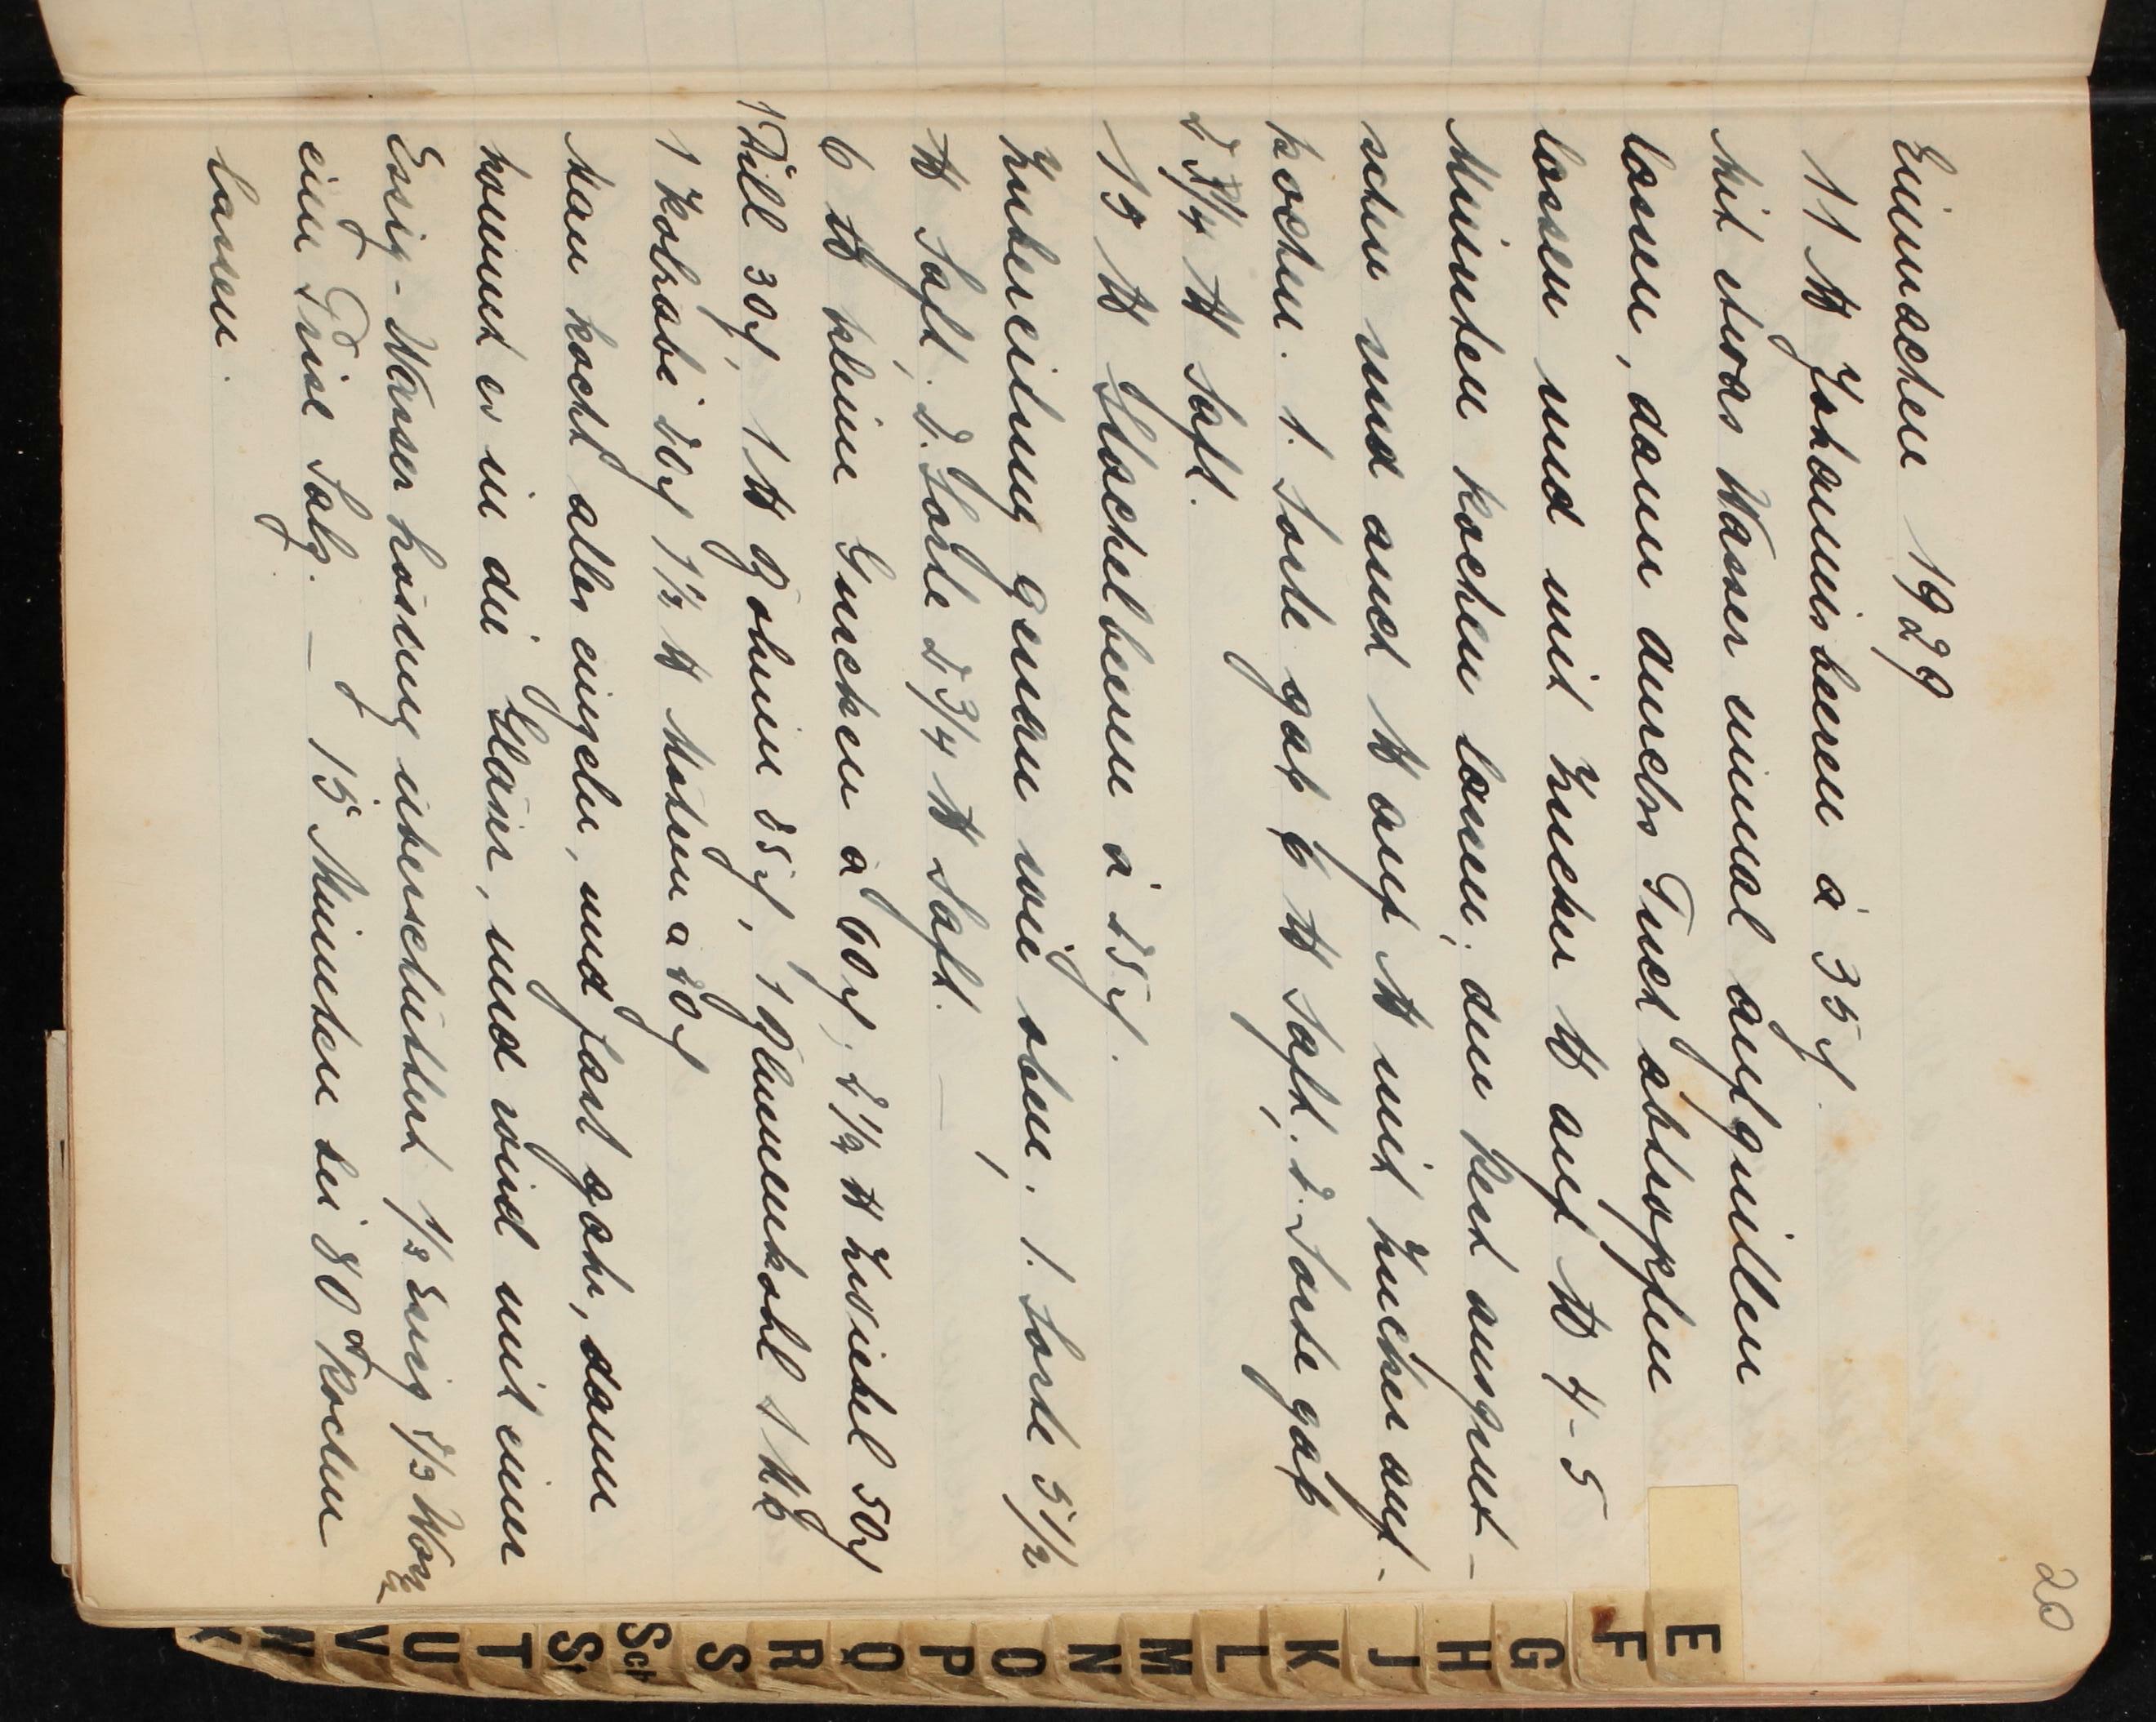 20
Einmachen 1929
11 ℔ Johannisbeeren à 35 ₰.
Mit etwas Wasser einmal aufquillen
lassen, dann durchs Tuch abtropfen
lassen und mit Zucker ℔ auf ℔ 4-5
Minuten kochen lassen; den Rest ausquet-
schen und auch ℔ auf ℔ mit Zucker auf-
kochen. 1. Sorte gab 6 ℔ Saft. 2. Sorte gab
2 3/4 ℔ Saft.
15 ℔ Stachelbeeren à 25 ₰.
Zubereitung genau wie oben. 1. Sorte 5 1/2
℔ Saft. 2. Sorte 2 3/4 ℔ Saft. —
6 ℔ kleine Gurcken a 60 ₰, 2 1/2 ℔ Zwiebel 50 ₰
1 Dill 30 ₰, 1 ℔ Bohnen 55 ₰, 1 Blumenkohl 1 Mk
1 Kohlrabi 20 ₰ 1 1/2 ℔ Möhren a 20 ₰
Man kocht alles einzeln, und fast gahr, dann
kommt es in die Gläser, und wird mit einer
Essig-Wasser hösung überschüttet 1/3 Essig 2/3 Wass
eine Prise Salz. — 15 Minuten bei 80° kochen
lassen.
E
F
G
H
J
K
L
M
N
O
P
Q
R
S
Sch
St
T
U
V
W